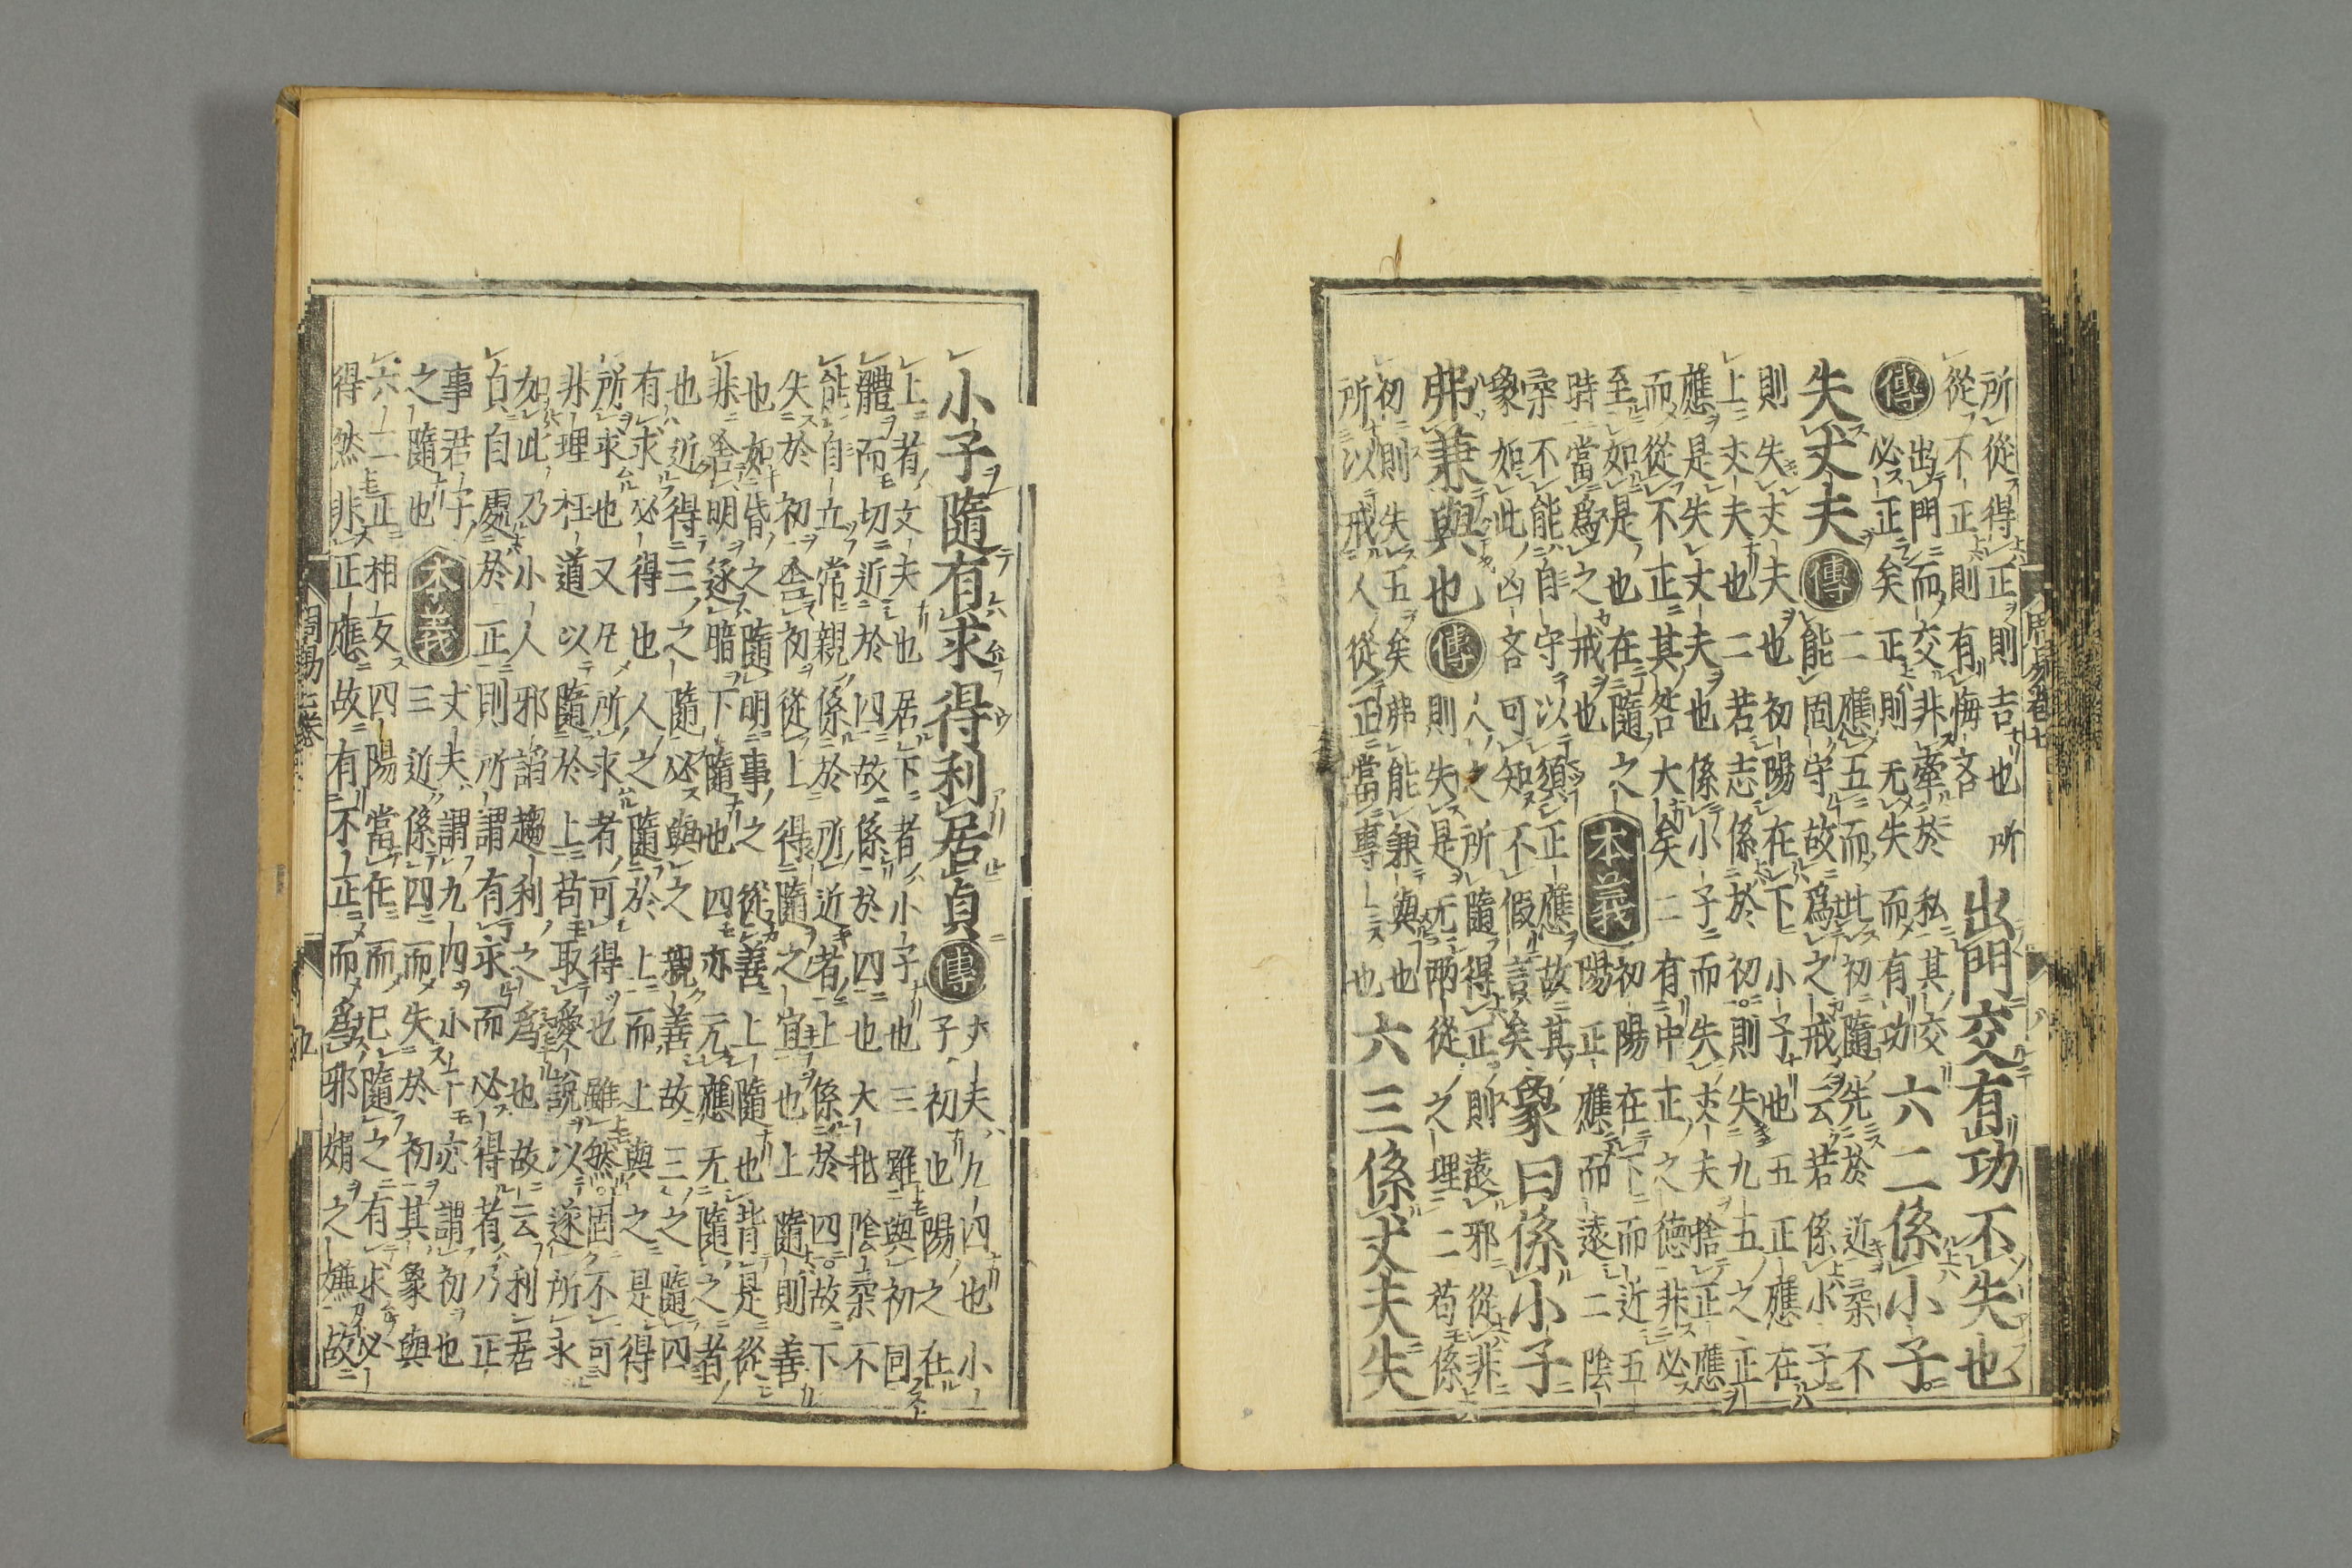 所從得正則吉也所
從不正則有悔吝
出門交有功不失也
傳
出門而交非牽於私其交
必正矣正則无失而有功
六二係小子
失丈夫
傳
二應五而比初隨先於近柔不
能固守故爲之戒云若係小子
則失丈夫也初陽在下小子也五正應在
上丈夫也二若志係於初則失九五之正
應是失丈夫也係小子而失丈夫捨正應
而從不正其咎大矣二有中正之德非必
至如是也在隨之
時當爲之戒也
本義
初陽在下而近五
陽正應而遠二陰
柔不能自守以須正應故其
象如此凶吝可知不假言矣
象曰係小子
弗兼與也
傳
人之所隨得正則遠邪從非
則失是无兩從之理二苟係
初則失五矣弗能兼與也
所以戒人從正當專一也
六三係丈夫失
小子隨有求得利居貞
傳
丈夫九四也小
子初也陽之在
上者丈夫也居下者小子也三雖與初同
體而切近於四故係於四也大抵陰柔不
能自立常親係於所近者上係於四故下
失於初舍初從上得隨之宜也上隨則善
也如昏之隨明事之從善上隨也背是從
非舍明逐暗下隨也四亦无應无隨之者
也近得三之隨必與之親善故三之隨四
有求必得也人之隨於上而上與之是得
所求也又凡所求者可得也雖然固不可
非理枉道以隨於上苟取愛說以遂所求
如此乃小人邪諂趨利之爲也故云利居
貞自處於正則所謂有求而必得者乃正
事君子
之隨也
本義
丈夫謂九四小子亦謂初也
三近係四而失於初其象與
六二正相反四陽當任而己隨之有求必
得然非正應故有不正而爲邪媚之嫌故